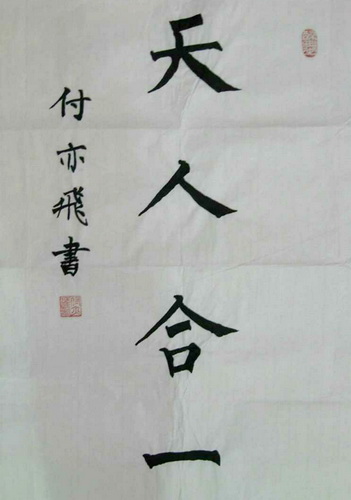 天人合一
付亦飛書